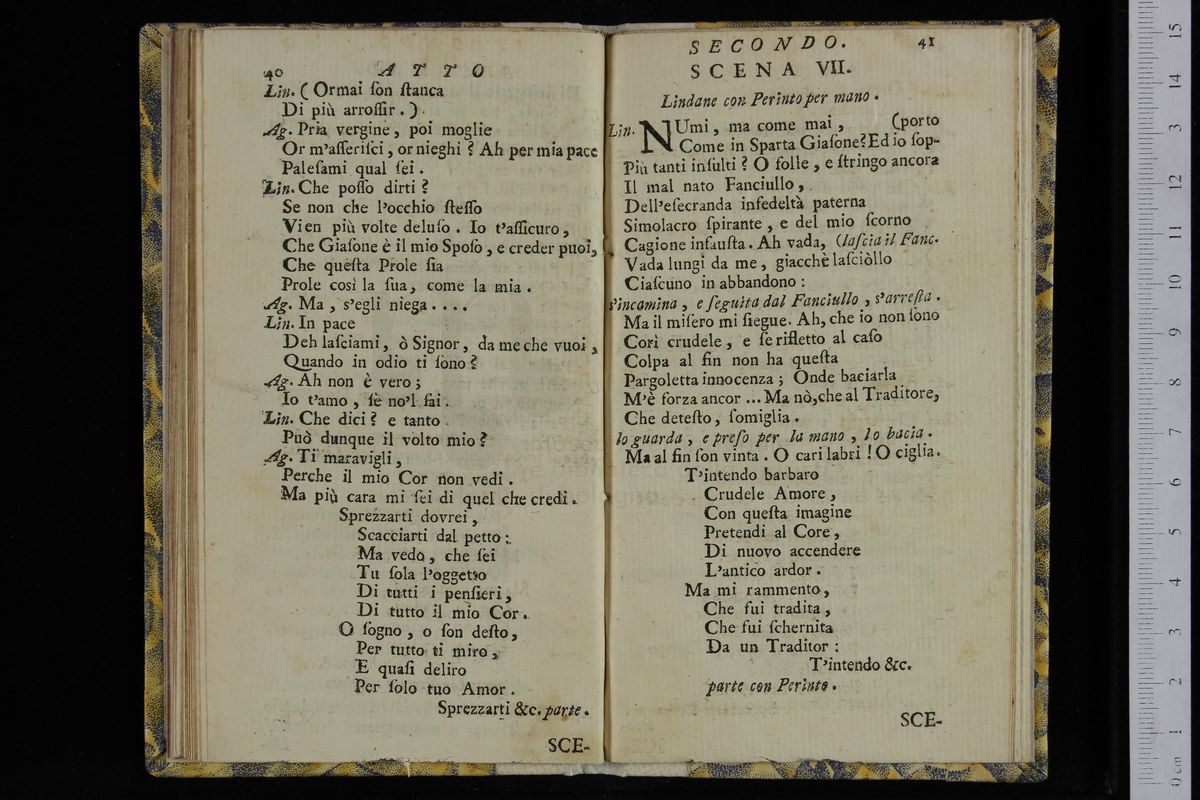 40 ATTO
Lin. ( Ormai ſon ſtanca
Di più arroſſir . )
Ag. Pria vergine , poi moglie
Or m'aſſeriſci, or nieghi ? Ah per mia pace
Paleſami qual ſei .
Lin. Che poſſo dirti ?
Se non che l'occhio ſteſſo
Vien più volte deluſo . Io t'aſſicuro ,
Che Giaſone è il mio Spoſo , e creder puoi,
Che queſta Prole ſia
Prole così la ſua, come la mia .
Ag. Ma , s'egli niega . . . .
Lin. In pace
Deh laſciami, ò Signor, da me che vuoi ,
Quando in odio ti ſono ?
Ag. Ah non è vero ;
Io t'amo , ſe no'l ſai .
Lin. Che dici ? e tanto
Può dunque il volto mio ?
Ag. Ti maravigli ,
Perche il mio Cor non vedi .
Ma più cara mi ſei di quel che credi .
Sprezzarti dovrei ,
Scacciarti dal petto :
Ma vedo , che ſei
Tu ſola l'oggetto
Di tutti i penſieri ,
Di tutto il mio Cor .
O ſogno , o ſon deſto ,
Per tutto ti miro ,
E quaſi deliro
Per ſolo tuo Amor .
Sprezzarti &c. parte .
SCE-
SECONDO. 41
SCENA VII.
Lindane con Perinto per mano .
Lin. NUmi , ma come mai , (porto
Come in Sparta Giaſone? Ed io ſop-
Più tanti inſulti ? O folle , e ſtringo ancora
Il mal nato Fanciullo ,
Dell'eſecranda infedeltà paterna
Simolacro ſpirante , e del mio ſcorno
Cagione infauſta . Ah vada, (laſcia il Fanc.
Vada lungi da me , giacchè laſciòllo
Ciaſcuno in abbandono :
s'incamina , e ſeguita dal Fanciullo , s'arreſta .
Ma il miſero mi ſiegue. Ah, che io non ſono
Cori crudele , e ſe rifletto al caſo
Colpa al fin non ha queſta
Pargoletta innocenza ; Onde baciarla
M'è forza ancor ... Ma nò, che al Traditore,
Che deteſto , ſomiglia .
lo guarda , e preſo per la mano , lo bacia .
Ma al fin ſon vinta . O cari labri ! O ciglia .
T'intendo barbaro
Crudele Amore ,
Con queſta imagine
Pretendi al Core ,
Di nuovo accendere
L'antico ardor .
Ma mi rammento ,
Che fui tradita ,
Che fui ſchernita
Da un Traditor :
T'intendo &c.
parte con Perinto .
SCE-
0 cm 1 2 3 4 5 6 7 8 9 10 11 12 13 14 15